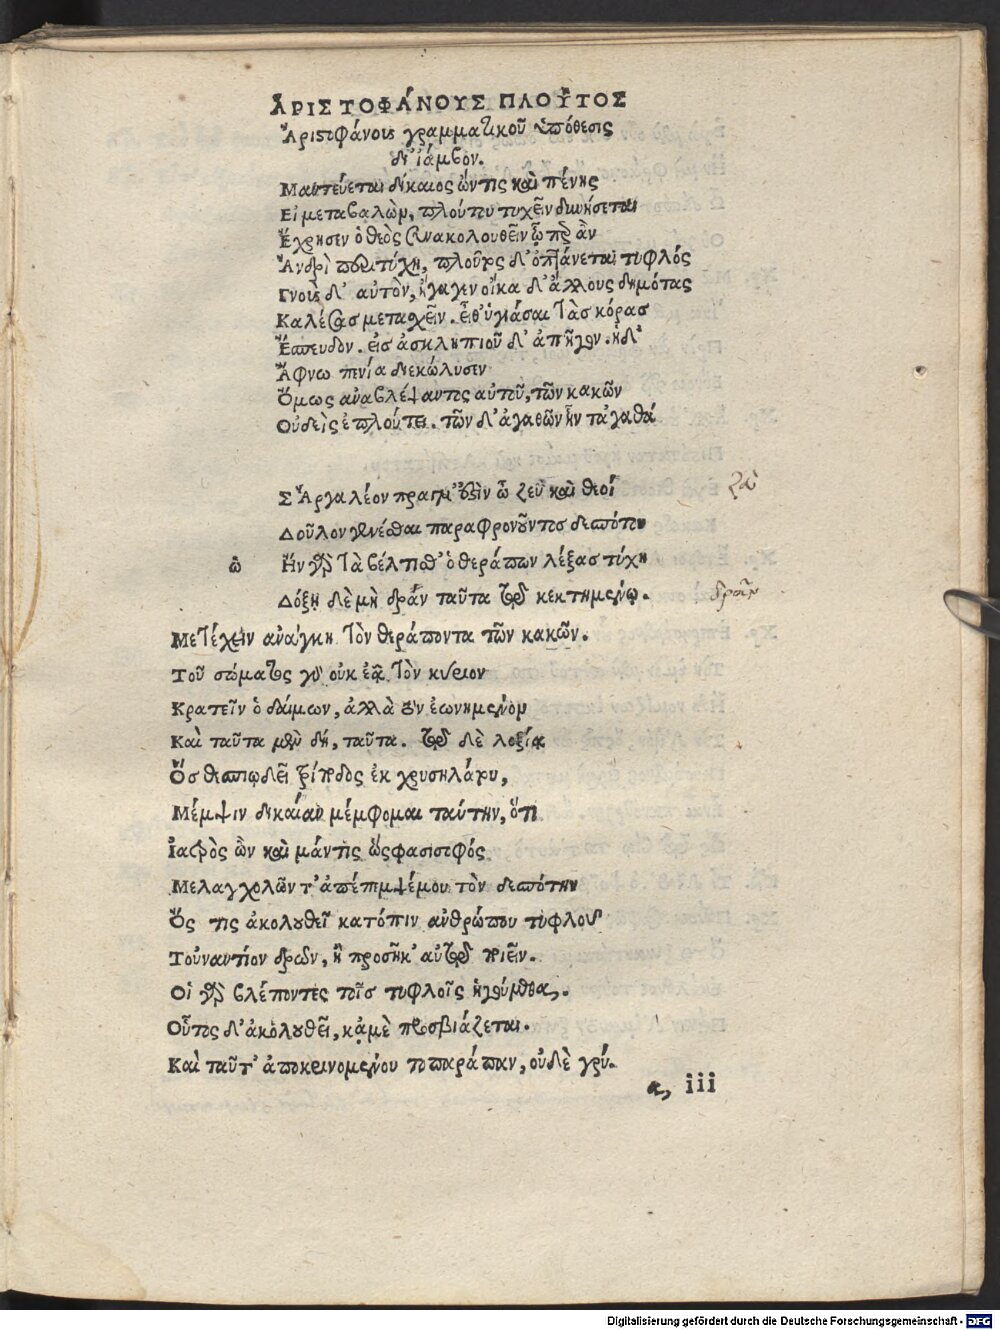 ΑΡΙΣΤΟΦΑΝΟΥΣ ΠΛΟΥΤΟΣ
Ἀριστοφάνους γραμματικοῦ ὑπόθεσις
δι' ἰάμβον.
Μαντεύεται δίκαιος ὤν τις καὶ πένης
Εἰ μεταβαλὼν, πλούτου τυχεῖν δυνήσεται
Ἔχρησεν ὁ θεὸς συνακολουθεῖν ᾧπερ ἂν
Ἀνδρὶ περιτύχῃ, πλοῦτος δ' ὀπτάνεται τυφλός
Γνοὺς δ' αὐτὸν, ἤγαγεν οἴκαδ' ἄλλους δημότας
Καλέσας μετασχεῖν. εἶθ' ὑγιάσαι τὰς κόρας
Ἔσπευδον. εἰς ἀσκληπιοῦ δ' ἀπῆγον. ἡ δ'
Ἄφνω πενία διεκώλυσεν
Ὅμως ἀναβλέψαντος αὐτοῦ, τῶν κακῶν
Οὐδεὶς ἐπλούτει. τῶν δ' ἀγαθῶν ἦν τἀγαθά
Σ Ἀργαλέον πραγμ' ἐστὶν ὦ ζεῦ καὶ θεοί
Δοῦλον γενέσθαι παραφρονοῦντος δεσπότου
ὢ Ἢν γὰρ τὰ βέλτισθ' ὁ θεράπων λέξας τύχῃ
Δόξῃ δὲ μὴ δρᾶν ταῦτα τῷ κεκτημένῳ. δρᾶν
Μετέχειν ἀνάγκη τὸν θεράποντα τῶν κακῶν.
Τοῦ σώματος γὰρ οὐκ ἐᾷ τὸν κύριον
Κρατεῖν ὁ δαίμων, ἀλλὰ τὸν ἐωνημένον
Καὶ ταῦτα μὲν δὴ, ταῦτα. τῷ δὲ λοξίᾳ
Ὃς θεσπιῳδεῖ τρίποδος ἐκ χρυσηλάτου,
Μέμψιν δικαίαν μέμφομαι ταύτην, ὅτι
Ἰατρὸς ὢν καὶ μάντις ὥς φασι σοφός
Μελαγχολῶντ' ἀπέπεμψέ μου τὸν δεσπότην
Ὅς τις ἀκολουθεῖ κατόπιν ἀνθρώπου τυφλοῦ
Τοὐναντίον δρῶν, ἢ προσῆκ' αὐτῷ ποιεῖν.
Οἱ γὰρ βλέποντες τοῖς τυφλοῖς ἡγούμεθα.
Οὗτος δ' ἀκολουθεῖ, κἀμὲ προσβιάζεται.
Καὶ ταῦτ' ἀποκρινομένου τοπαράπαν, οὐδὲ γρύ.
α, iii
Digitalisierung gefördert durch die Deutsche Forschungsgemeinschaft - DFG